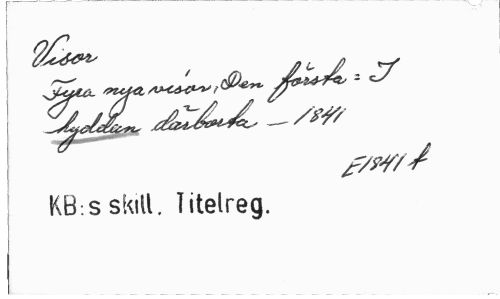 Visor
Fyra nya visor, Den första: I
hyddan därborta – 1841
E1841 f
KB:s skill. Titelreg.